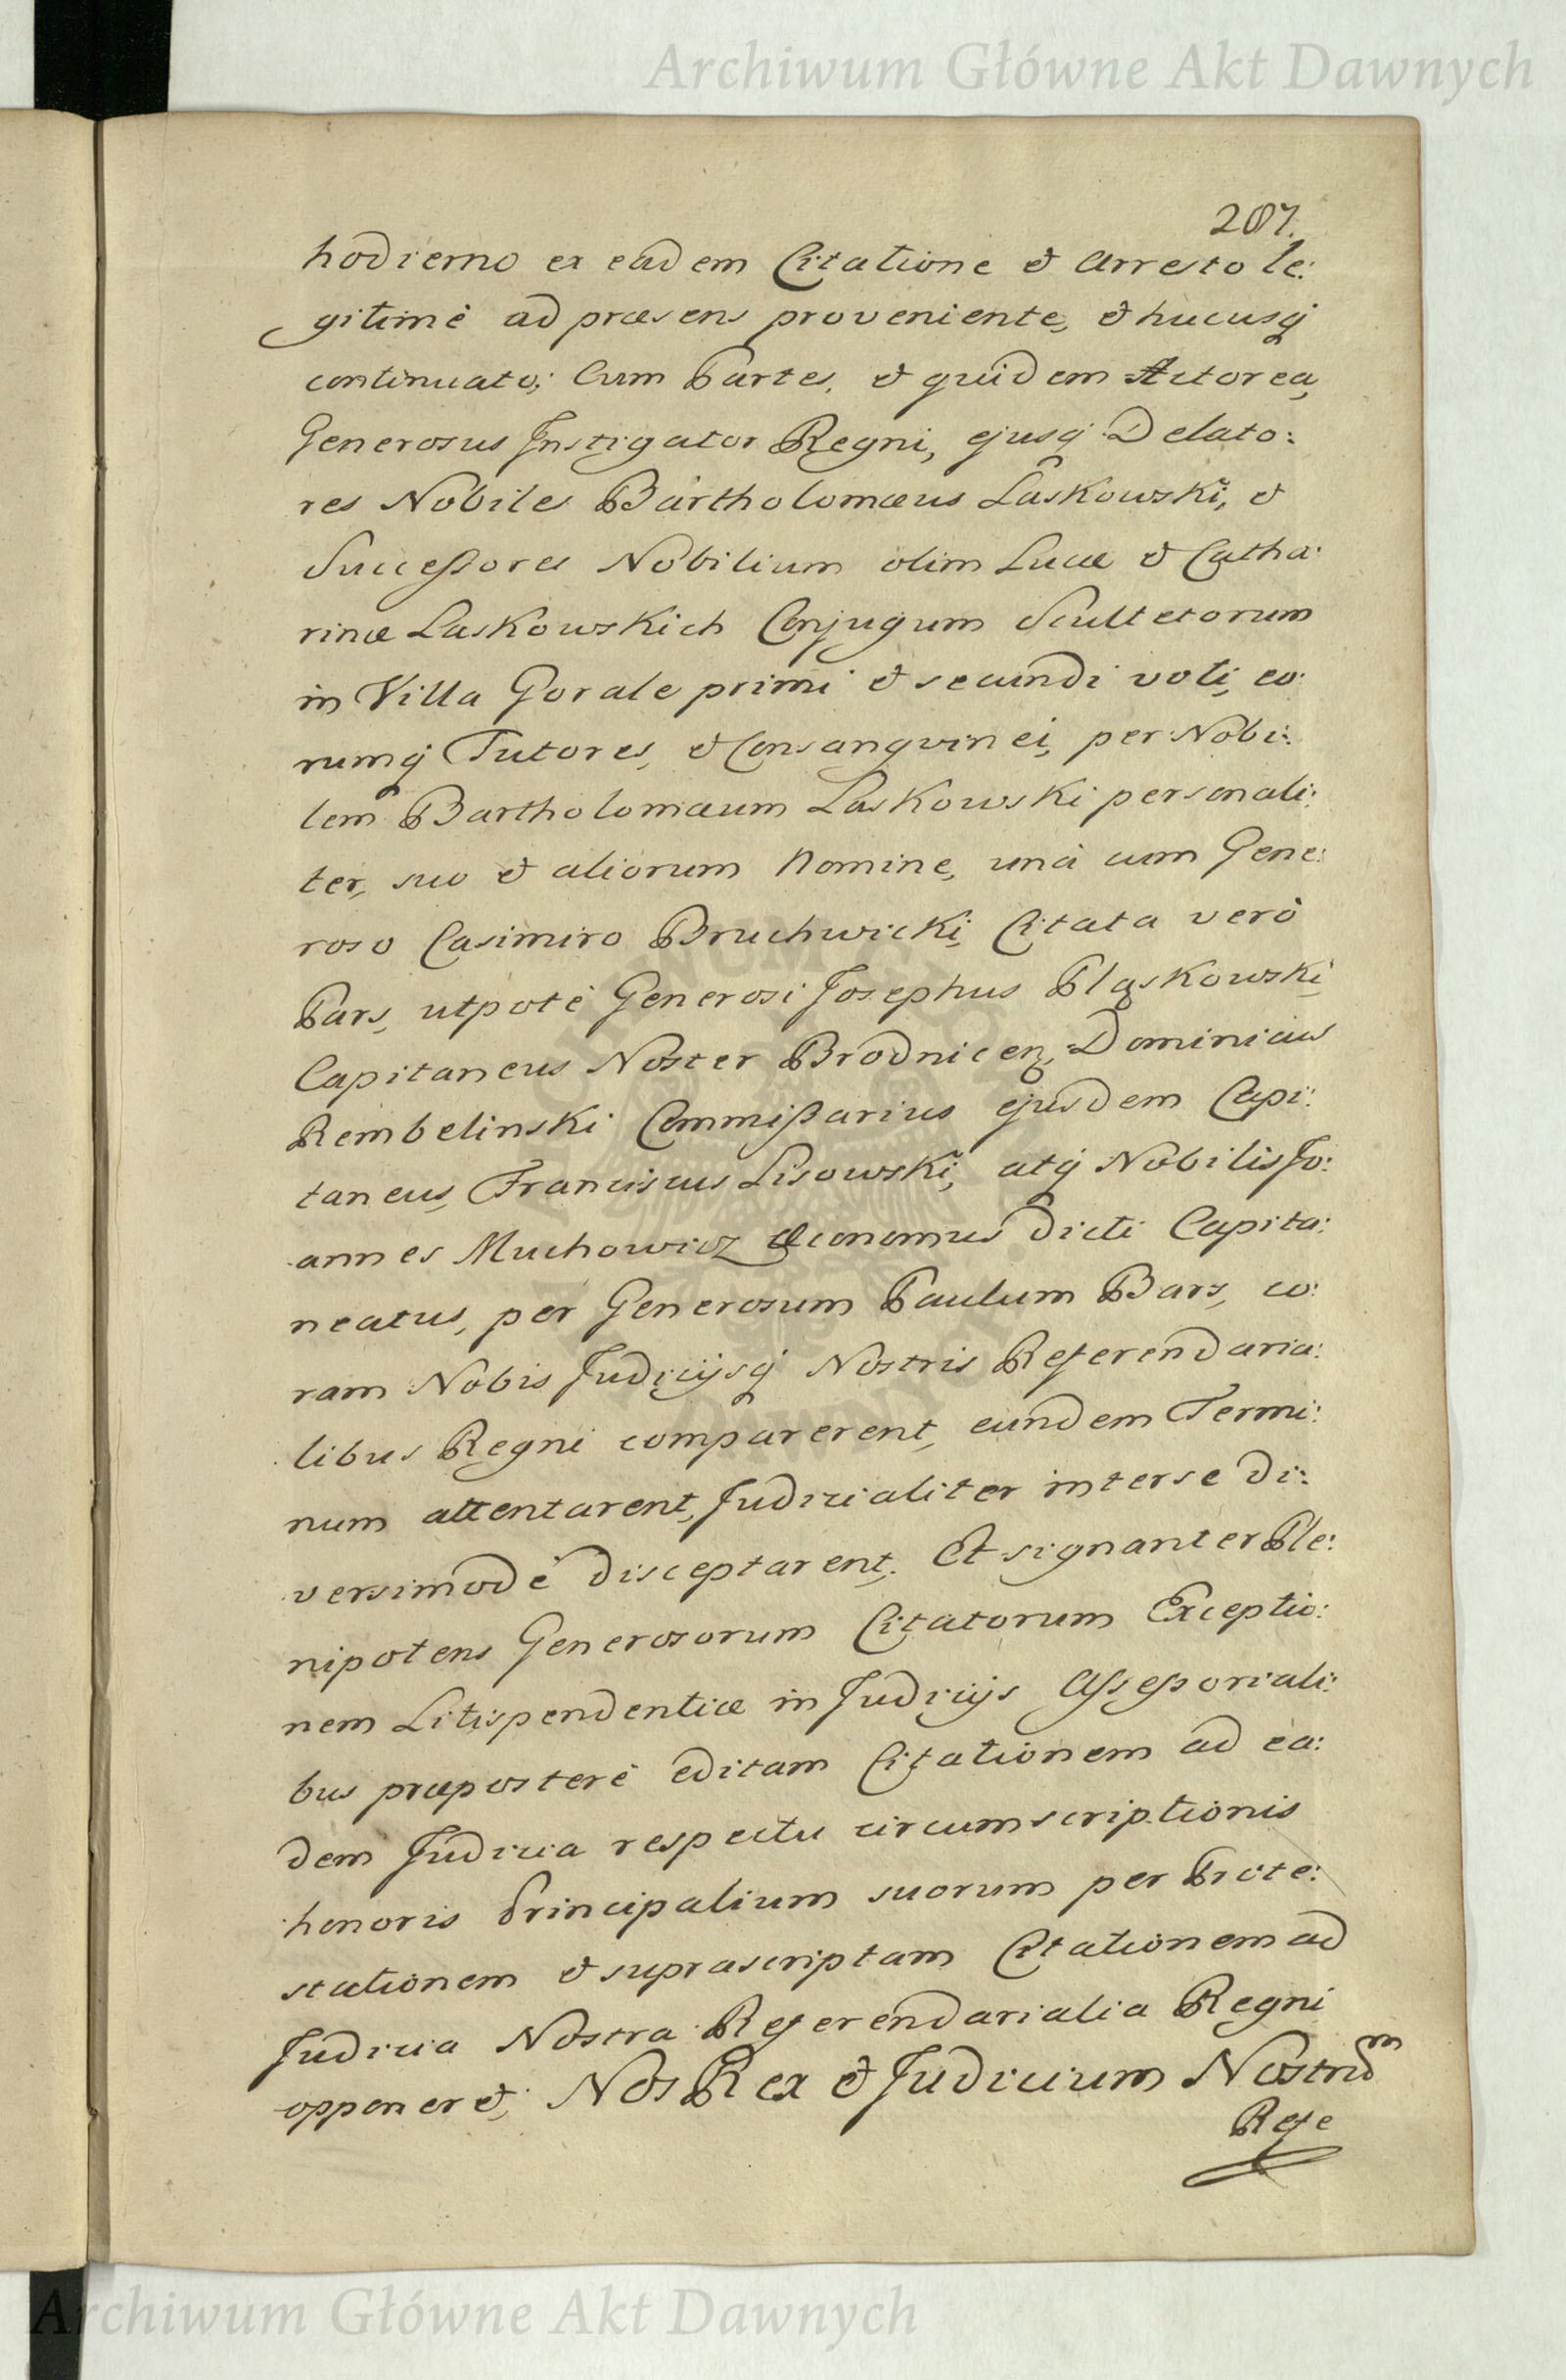 Archiwum Główne Akt Dawnych
207.
hodierno ex eadem Citatione & Arresto le:
gitimè ad præsens proveniente, & hucusq́
continuato; Cum Partes, & quidem Actorea,
Generosus Instigator Regni, ejusq́ Delato:
res Nobiles Bartholomæus Laskowski, &
Successores Nobilium olim Lucæ & Catha:
rinæ Laskowskich Conjugum Scultetorum
in Villa Gorale primi & secundi voti, eo:
rumq́ Tutores, & Consangvinei, per Nobi:
lem Bartholomæum Laskowski personali:
ter, suo & aliorum Nomine, unà cum Gene:
roso Casimiro Bruchwicki, Citata verò
Pars, utpotè Generosi Josephus Pląskowski
Capitaneus Noster Brodnicen, Dominicus
Rembelinski Commissarius ejusdem Capi:
taneus, Franciscus Lisowski, atq́ Nobilis Jo:
annes Muchowicz Œconomus dicti Capita:
neatus, per Generosum Paulum Bars, co:
ram Nobis Judicijsq́ Nostris Referendaria:
libus Regni comparerent, eundem Termi:
num attentarent, Judicialiter inter se di:
versimodè disceptarent. Et signanter Ple:
nipotens Generosorum Citatorum Exceptio:
nem Litispendentiæ in Judicijs Assessoriali:
bus præposterè editam Citationem ad ea:
dem Judicia respectu circumscriptionis
honoris Principalium suorum per Prote:
stationem & suprascriptam Citationem ad
Judicia Nostra Referendarialia Regni
opponeret; Nos Rex & Judicium Nostrum
Refe
Archiwum Główne Akt Dawnych